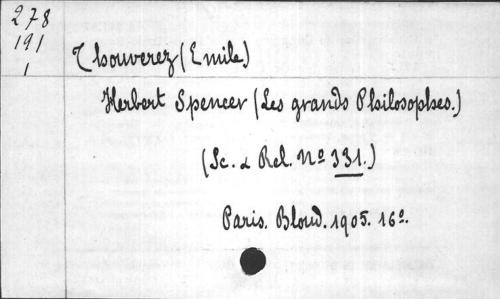 278
191
1
Thouverez (Emile)
Herbert Spencer (Les grands Philosophes.)
(Sc. & Rel. Nº 331.)
Paris. Bloud. 1905. 16º.